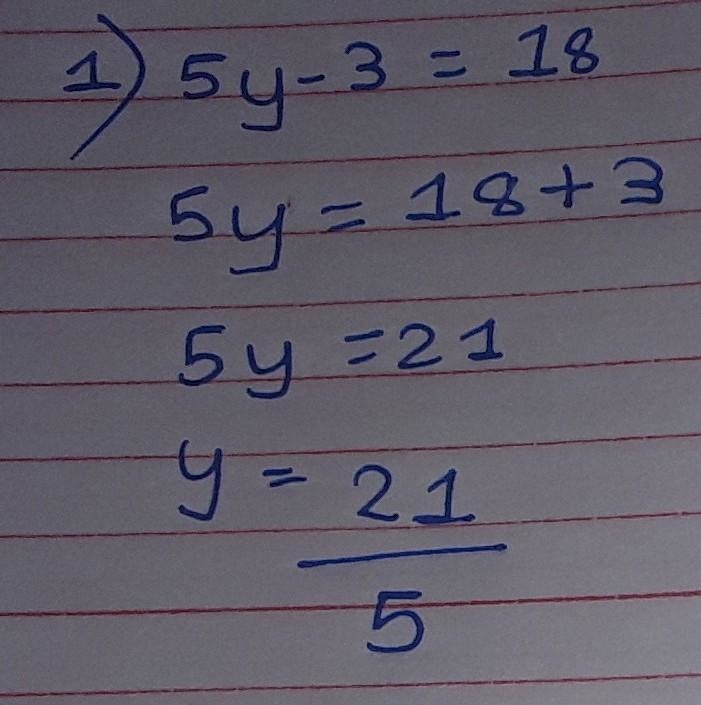 1) 5y-3 = 18
5y = 18+3
5y =21
y = 21
5